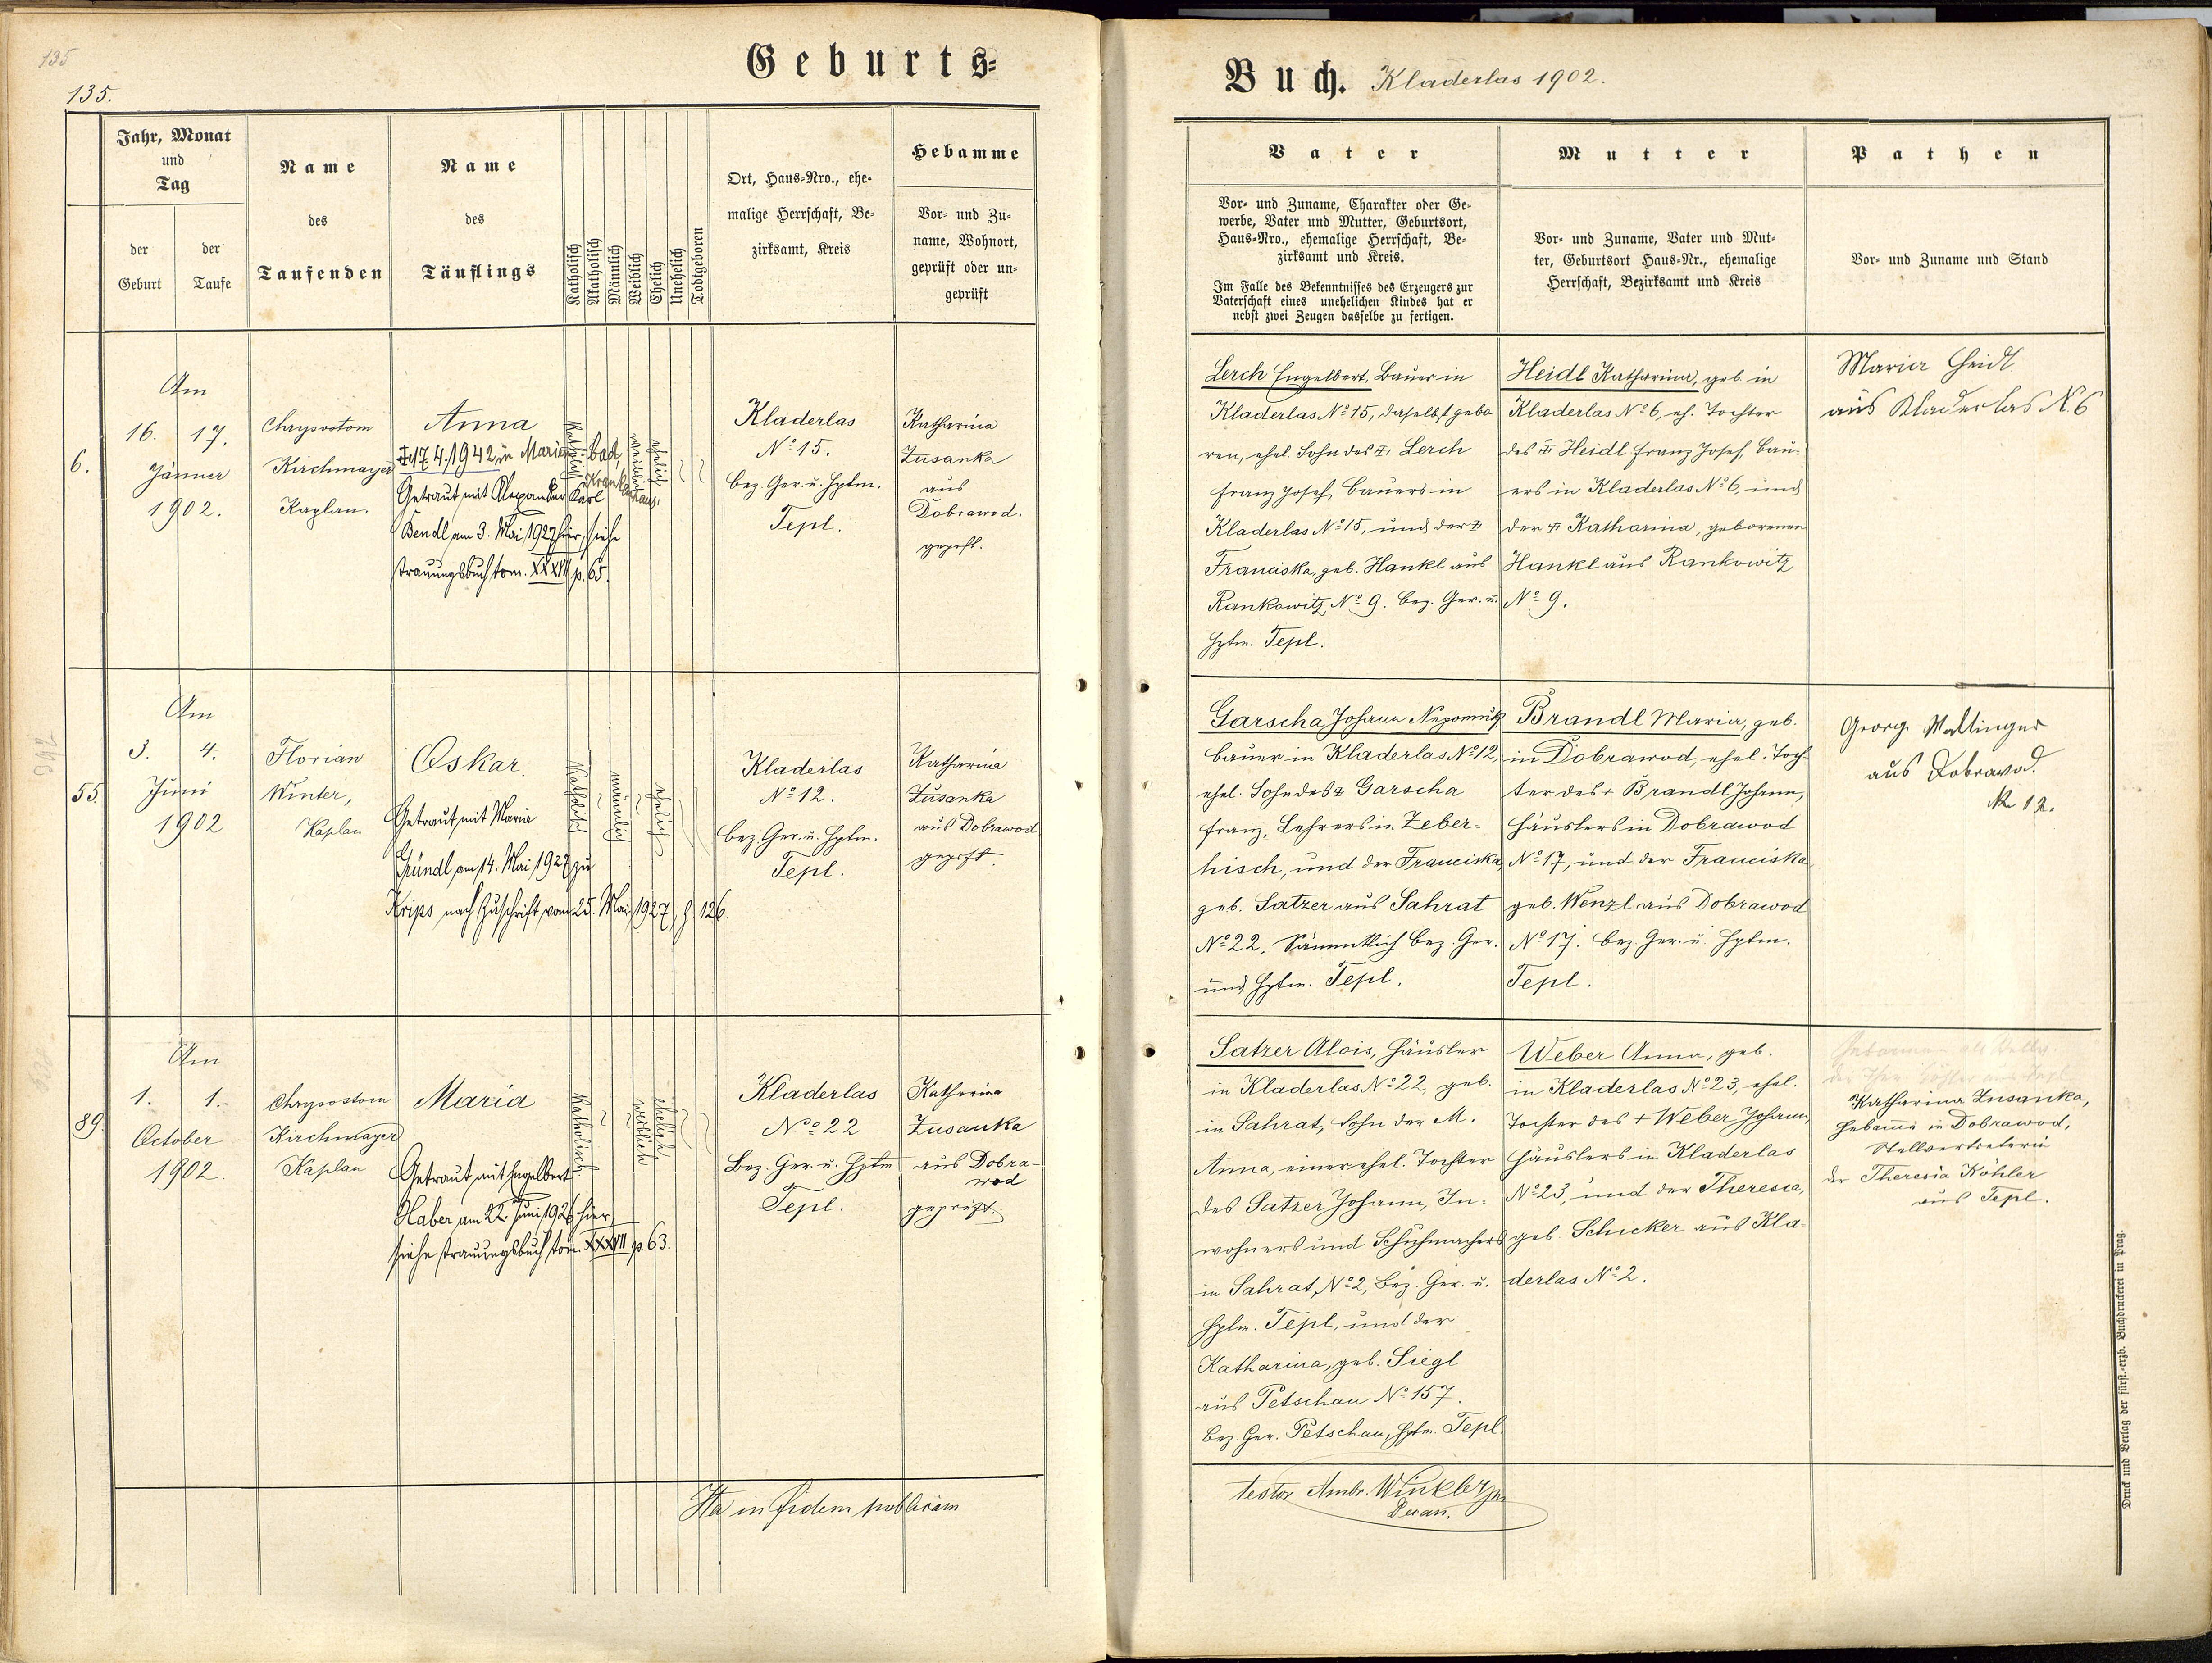 135
135.
Geburts-
Jahr, Monat
und
Tag
der
Geburt
der
Taufe
Name
des
Taufenden
Name
des
Täuflings
Katholisch
Akatholisch
Männlich
Weiblich
Ehelich
Unehelich
Todtgeboren
Ort, Haus-Nro., ehe-
malige Herrschaft, Be-
zirksamt, Kreis
Hebamme
Vor- und Zu-
name, Wohnort,
geprüft oder un-
geprüft
6.
Am
16. 17.
Jänner
1902.
Chrysostom
Kirchmayer
Kaplan.
Anna
17.4.1942 in Marienbad,
Krankenhaus.
Getraut mit Alexander Karl
Bendl am 3. Mai 1927 hier, siehe
Trauungsbuch tom. XXXVII p. 65.
Katholisch
weiblich
ehelich
Kladerlas
Nº 15.
Bez. Ger. u. Hptm.
Tepl.
Katharina
Zusanka
aus
Dobrawod.
geprft.
55.
Am
3. 4.
Juni
1902
Florian
Winter,
Kaplan
Oskar.
Getraut mit Maria
Gründl am 14. Mai 1927 zu
Krips nach Zuschrift vom 25. Mai 1927, 126.
Katholisch
männlich
ehelich
Kladerlas
Nº 12.
Bez. Ger. u. Hptm.
Tepl.
Katharina
Zusanka
aus Dobrawod
geprft.
89.
Am
1. 1.
October
1902.
Chrysostom
Kirchmayer
Kaplan
Maria
Getraut mit Engelbert
Haber am 22. Juni 1926 hier,
siehe Trauungsbuch tom. XXXVII p. 63.
Katholisch
weiblich
ehelich
Kladerlas
Nº 22
Bez. Ger. u. Hptm
Tepl.
Katharina
Zusanka
aus Dobra-
wod
geprüft.
Ita in fidem publicam
Buch. Kladerlas 1902.
Vater
Vor- und Zuname, Charakter oder Ge-
werbe, Vater und Mutter, Geburtsort,
Haus-Nro., ehemalige Herrschaft, Be-
zirksamt und Kreis.
Im Falle des Bekenntnisses des Erzeugers zur
Vaterschaft eines unehelichen Kindes hat er
nebst zwei Zeugen dasselbe zu fertigen.
Mutter
Vor- und Zuname, Vater und Mut-
ter, Geburtsort Haus-Nr., ehemalige
Herrschaft, Bezirksamt und Kreis
Pathen
Vor- und Zuname und Stand
Lerch Engelbert, Bauer in
Kladerlas Nº 15, daselbst gebo
ren, ehel. Sohn des † Lerch
Franz Josef, Bauers in
Kladerlas Nº 15, und der †
Franciska, geb. Hankl aus
Rankowitz Nº 9. Bez. Ger. u.
Hptm. Tepl.
Heidl Katharina, geb. in
Kladerlas Nº 6, eh. Tochter
des † Heidl Franz Josef, Bau-
ers in Kladerlas Nº 6 und
der † Katharina, geborenen
Hankl aus Rankowitz
Nº 9.
Maria Heidl
aus Kladerlas N. 6
Garscha Johann Nepomuk
Bauer in Kladerlas Nº 12,
ehel. Sohn des † Garscha
Franz, Lehrers in Zeber-
hisch, und der Franciska,
geb. Satzer aus Sahrat
Nº 22. Sämmtlich Bez. Ger.
und Hptm. Tepl.
Brandl Maria, geb.
in Dobrawod, ehel. Toch-
ter des + Brandl Johann,
Häuslers in Dobrawod
Nº 17, und der Franciska
geb. Wenzl aus Dobrawod
Nº 17. Bez. Ger. u. Hptm.
Tepl.
Georg Wattinger
aus Dobrawod.
Nr 12.
Satzer Alois, Häusler
in Kladerlas Nº 22, geb.
in Sahrat, Sohn der M.
Anna, einer ehel. Tochter
des Satzer Johann, In-
wohners und Schuhmachers
in Sahrat, Nº 2, Bez. Ger. u.
Hptm. Tepl, und der
Katharina, geb. Siegl
aus Petschau Nº 157.
Bez. Ger. Petschau, Hptm. Tepl.
Weber Anna, geb.
in Kladerlas Nº 23, ehel.
Tochter des + Weber Johann,
Häuslers in Kladerlas
Nº 23, und der Theresia,
geb. Schicker aus Kla-
derlas Nº 2.
Katharina Zusanka,
Hebamme in Dobrawod,
Stellvertreterin
der Theresia Köhler
aus Tepl.
testor Ambr. Winkler
Decan.
Druck und Verlag der fürst.-erzb. Buchdruckerei in Prag.